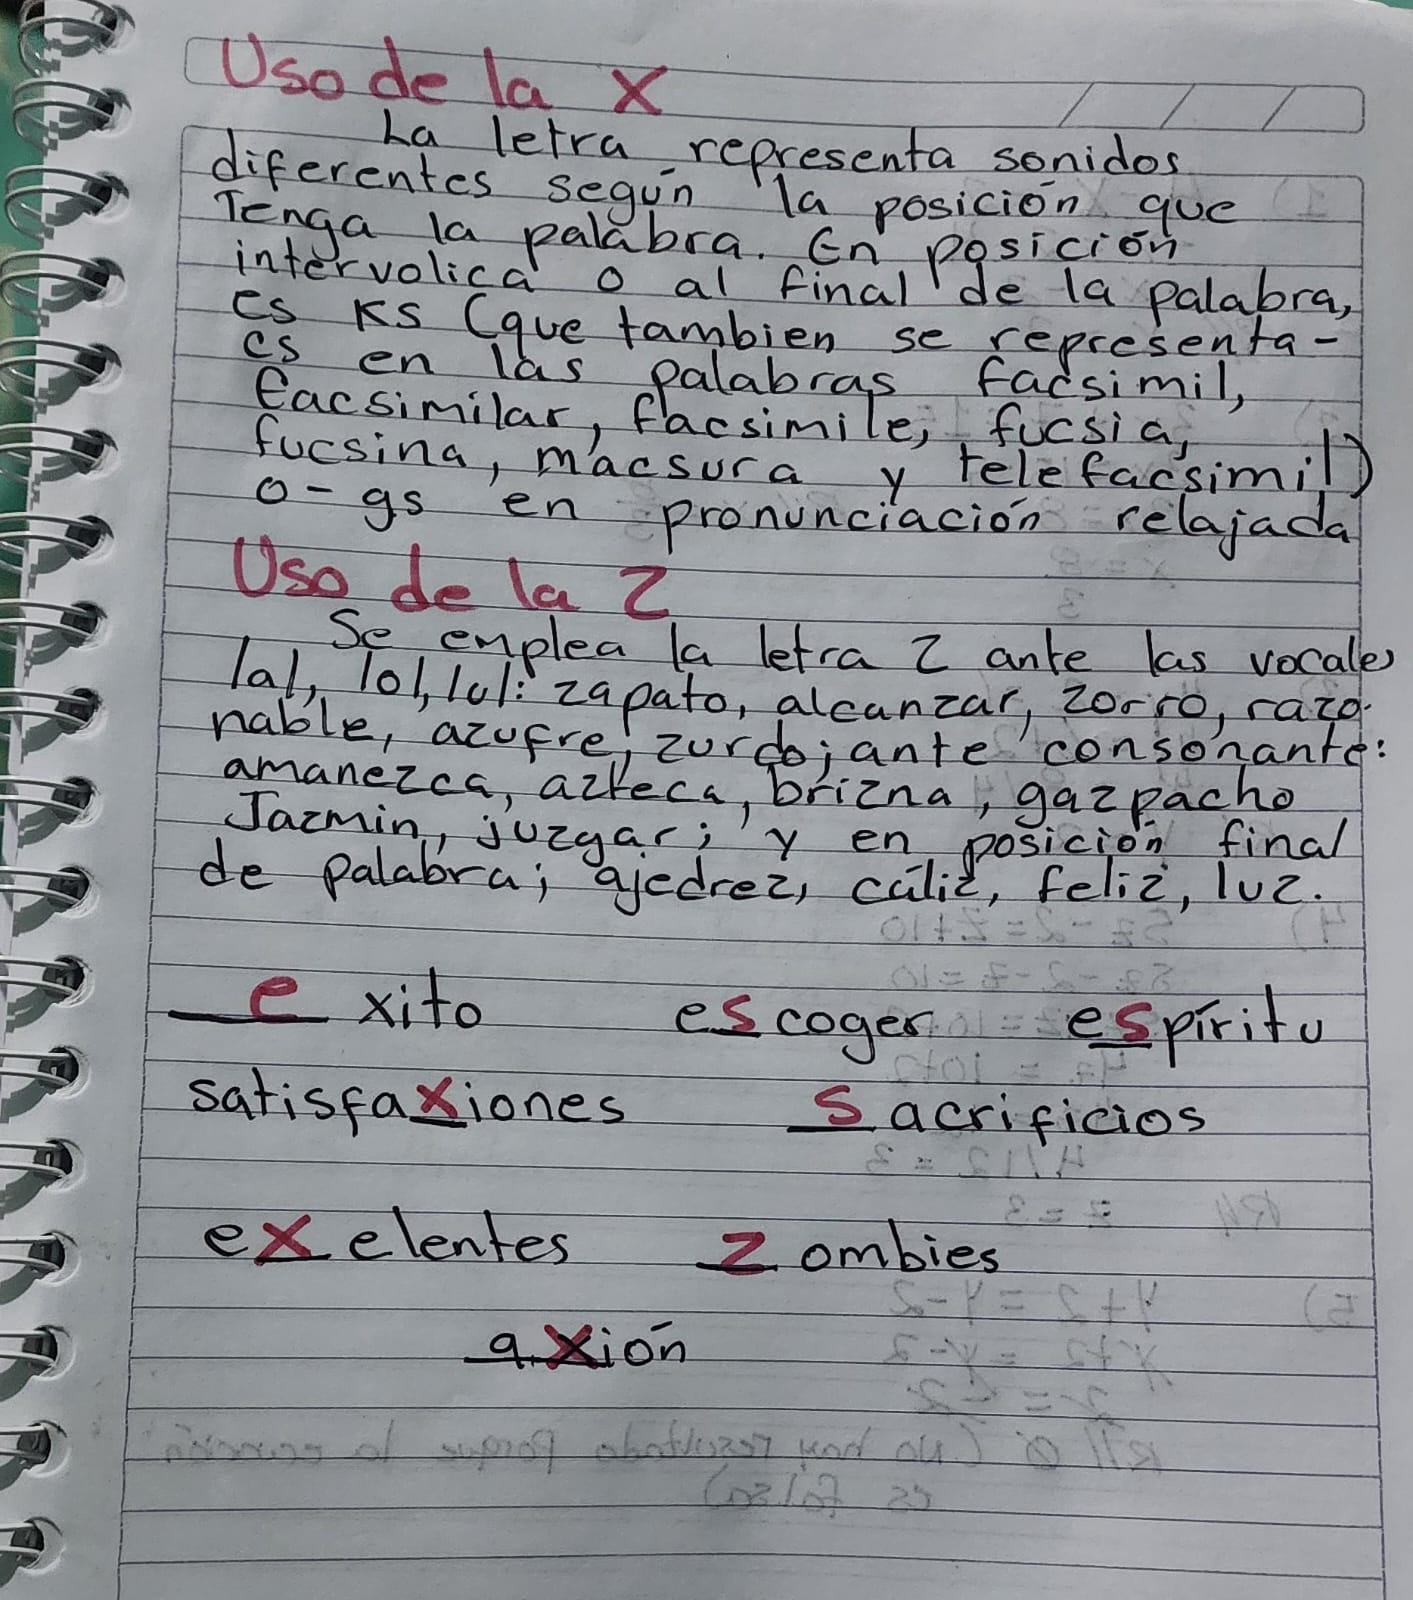 Uso de la X
La letra representa sonidos
diferentes según la posición que
Tenga la palabra. En posición
intervolica o al final de la palabra,
es KS (que tambien se representa-
cs en las palabras facsimil,
facsimilar, facsimile, fucsia,
fucsina, macsura y telefacsimil)
o-gs en pronunciación relajada
Uso de la Z
Se emplea la letra Z ante las vocales
lal, lol, lul: zapato, alcanzar, zorro, razo-
nable, azufre, zurdo; ante consonante:
amanezca, azteca, brizna, gazpacho
Jazmin, juzgar; y en posición final
de palabra; ajedrez, cáliz, feliz, luz.
e xito escoger espíritu
satisfaxiones s acrificios
ex elentes z ombies
axión